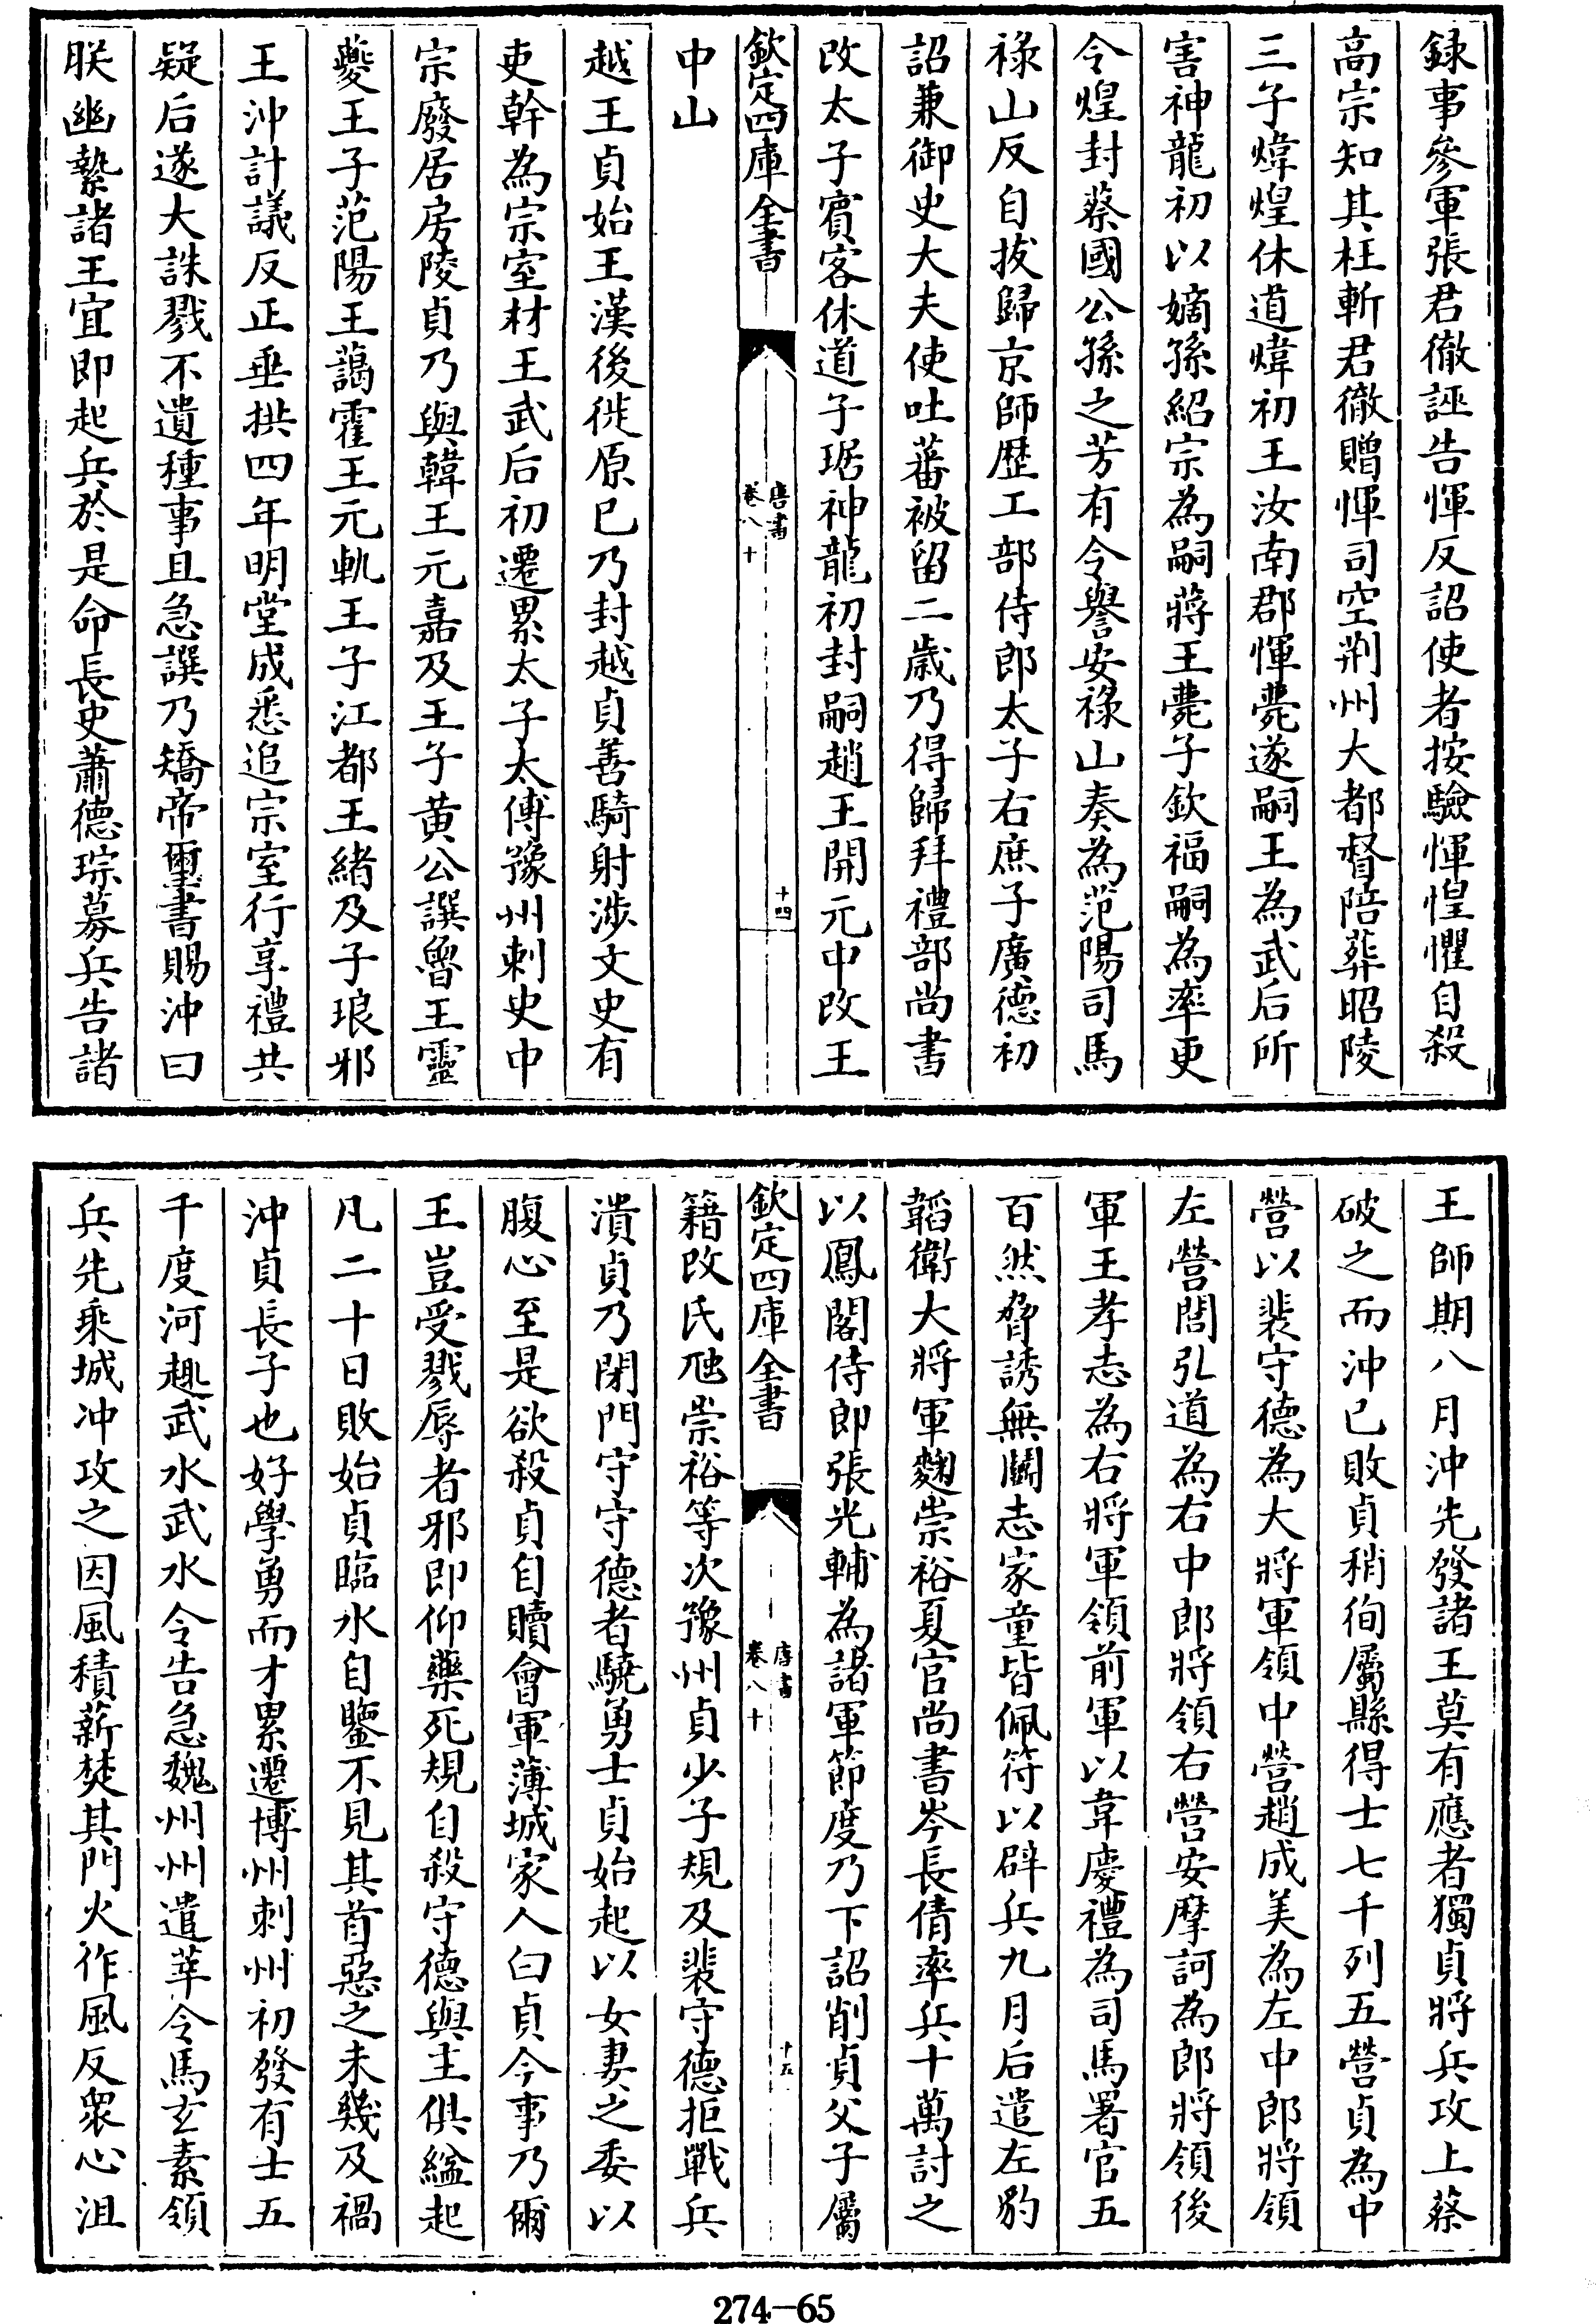 録事參軍張君徹誣告惲反詔使者按驗惲惶懼自殺
高宗知其枉斬君徹贈惲司空荆州大都督陪葬昭陵
三子煒煌休道煒初王汝南郡惲薨遂嗣王為武后所
害神龍初以嫡孫紹宗為嗣蔣王薨子欽福嗣為率更
令煌封蔡國公孫之芳有令譽安祿山奏為范陽司馬
祿山反自拔歸京師歴工部侍郎太子右庶子廣德初
詔兼御史大夫使吐蕃被留二歲乃得歸拜禮部尚書
改太子賓客休道子琚神龍初封嗣趙王開元中改王
欽定四庫全書
唐書
卷八十
十四
中山
越王貞始王漢後徙原已乃封越貞善騎射涉文史有
吏幹為宗室材王武后初遷累太子太傅豫州刺史中
宗廢居房陵貞乃與韓王元嘉及王子黄公譔魯王靈
夔王子范陽王藹霍王元軌王子江都王緒及子琅邪
王沖計議反正垂拱四年明堂成悉追宗室行享禮共
疑后遂大誅戮不遺種事且急譔乃矯帝璽書賜沖曰
朕幽縶諸王宜即起兵於是命長史蕭德琮募兵告諸
王師期八月沖先發諸王莫有應者獨貞將兵攻上蔡
破之而沖已敗貞稍徇屬縣得士七千列五營貞為中
營以裴守德為大將軍領中營趙成美為左中郎將領
左營閭弘道為右中郎將領右營安摩訶為郎將領後
軍王孝志為右將軍領前軍以韋慶禮為司馬署官五
百然脅誘無鬭志家童皆佩符以辟兵九月后遣左豹
韜衛大將軍麴崇裕夏官尚書岑長倩率兵十萬討之
以鳳閣侍郎張光輔為諸軍節度乃下詔削貞父子屬
欽定四庫全書
唐書
卷八十
十五
籍改氏虺崇裕等次豫州貞少子規及裴守德拒戰兵
潰貞乃閉門守守德者驍勇士貞始起以女妻之委以
腹心至是欲殺貞自贖會軍薄城家人白貞今事乃爾
王豈受戮辱者邪即仰藥死規自殺守德與主俱縊起
凡二十日敗始貞臨水自鑒不見其首惡之未幾及禍
沖貞長子也好學勇而才累遷博州刺州初發有士五
千度河趣武水武水令告急魏州州遣莘令馬玄素領
兵先乘城沖攻之因風積薪焚其門火作風反衆心沮
274-65